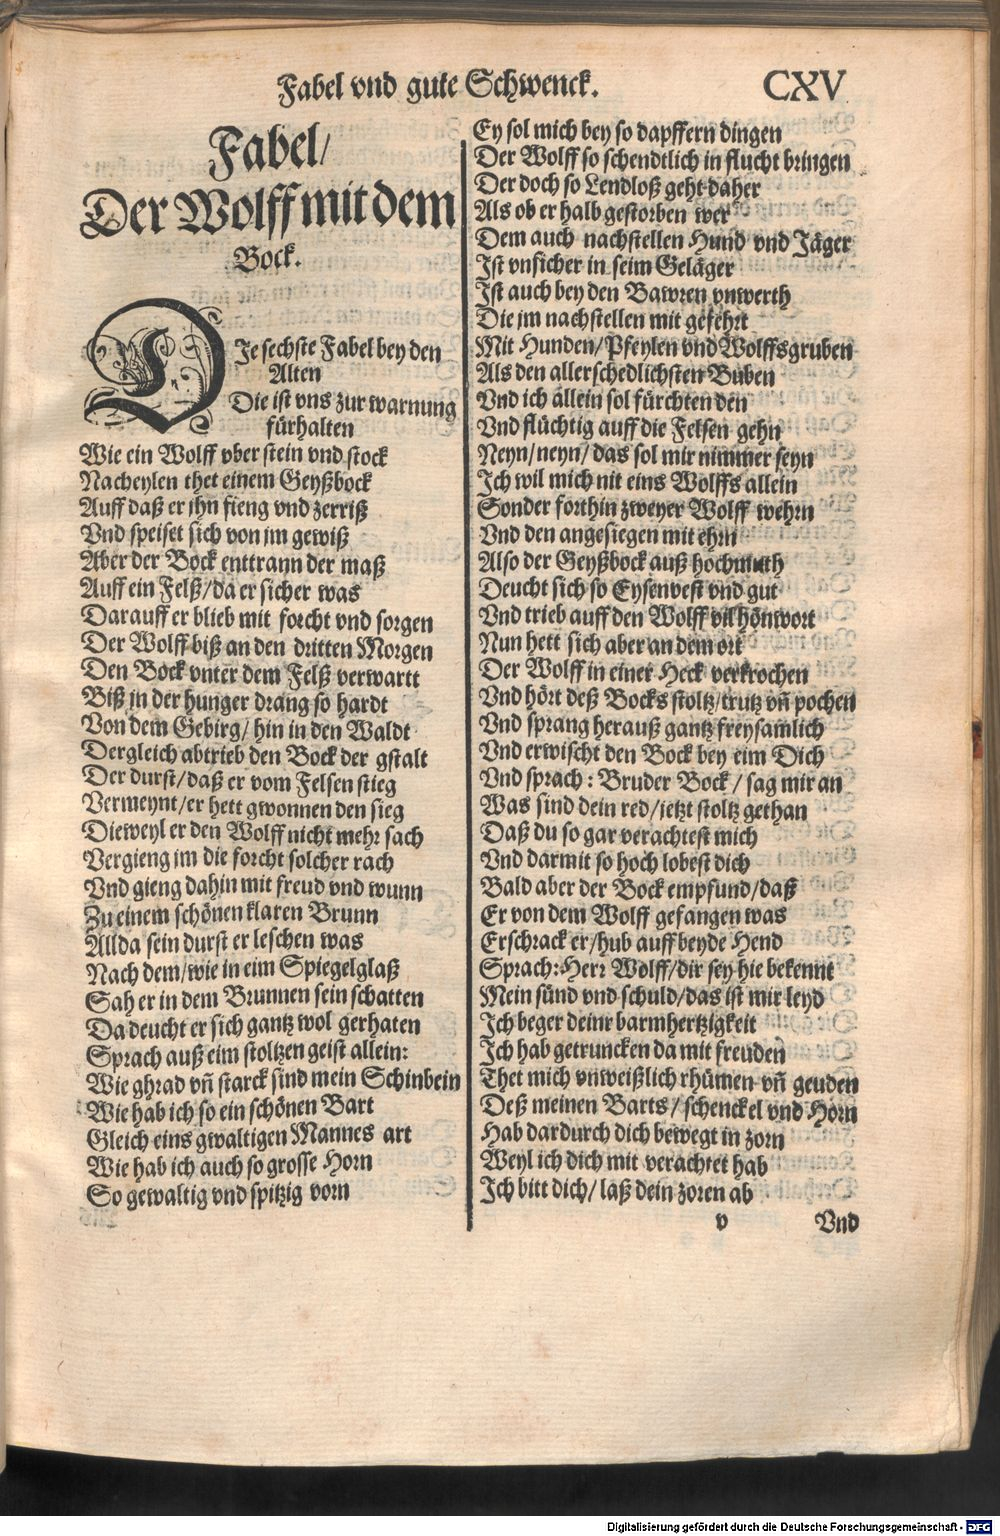 Fabel vnd gute Schwenck. CXV
Fabel/
Der Wolff mit dem
Bock.
DJe sechste Fabel bey den
Alten
Die ist vns zur warnung
fürhalten
Wie ein Wolff vber stein vnd stock
Nacheylen thet einem Geyßbock
Auff daß er jhn fieng vnd zerriß
Vnd speiset sich von jm gewiß
Aber der Bock enttrann der maß
Auff ein Felß/da er sicher was
Darauff er blieb mit forcht vnd sorgen
Der Wolff biß an den dritten Morgen
Den Bock vnter dem Felß verwartt
Biß jn der hunger drang so hardt
Von dem Gebirg/ hin in den Waldt
Dergleich abtrieb den Bock der gstalt
Der durst/daß er vom Felsen stieg
Vermeynt/er hett gwonnen den sieg
Dieweyl er den Wolff nicht mehr sach
Vergieng jm die forcht solcher rach
Vnd gieng dahin mit freud vnd wunn
Zu einem schönen klaren Brunn
Allda sein durst er leschen was
Nach dem/wie in eim Spiegelglaß
Sah er in dem Brunnen sein schatten
Da deucht er sich gantz wol gerhaten
Sprach auß eim stoltzen geist allein:
Wie ghrad vñ starck sind mein Schinbein
Wie hab ich so ein schönen Bart
Gleich eins gwaltigen Mannes art
Wie hab ich auch so grosse Horn
So gewaltig vnd spitzig vorn
Ey sol mich bey so dapffern dingen
Der Wolff so schendtlich in flucht bringen
Der doch so Lendloß geht daher
Als ob er halb gestorben wer
Dem auch nachstellen Hund vnd Jäger
Jst vnsicher in seim Geläger
Jst auch bey den Bawren vnwerth
Die jm nachstellen mit gefehrt
Mit Hunden/Pfeylen vnd Wolffsgruben
Als den allerschedlichsten Buben
Vnd ich allein sol fürchten den
Vnd flüchtig auff die Felsen gehn
Neyn/neyn/ das sol mir nimmer seyn
Jch wil mich nit eins Wolffs allein
Sonder forthin zweyer Wolff wehrn
Vnd den angesiegen mit ehrn
Also der Geyßbock auß hochmuth
Deucht sich so Eysenvest vnd gut
Vnd trieb auff den Wolff vil hönwort
Nun hett sich aber an dem ort
Der Wolff in einer Heck verkrochen
Vnd hört deß Bocks stoltz/trutz vñ pochen
Vnd sprang herauß gantz freysamlich
Vnd erwischt den Bock bey eim Dich
Vnd sprach: Bruder Bock/ sag mir an
Was sind dein red/jetzt stoltz gethan
Daß du so gar verachtest mich
Vnd darmit so hoch lobest dich
Bald aber der Bock empfund/daß
Er von dem Wolff gefangen was
Erschrack er/hub auff beyde Hend
Sprach: Herr Wolff/dir sey hie bekennt
Mein sünd vnd schuld/das ist mir leyd
Jch beger deinr barmhertzigkeit
Jch hab getruncken da mit freuden
Thet mich vnweißlich rhümen vñ geuden
Deß meinen Barts/ schenckel vnd Horn
Hab dardurch dich bewegt in zorn
Weyl ich dich mit verachtet hab
Jch bitt dich/ laß dein zoren ab
v Vnd
Digitalisierung gefördert durch die Deutsche Forschungsgemeinschaft - DFG